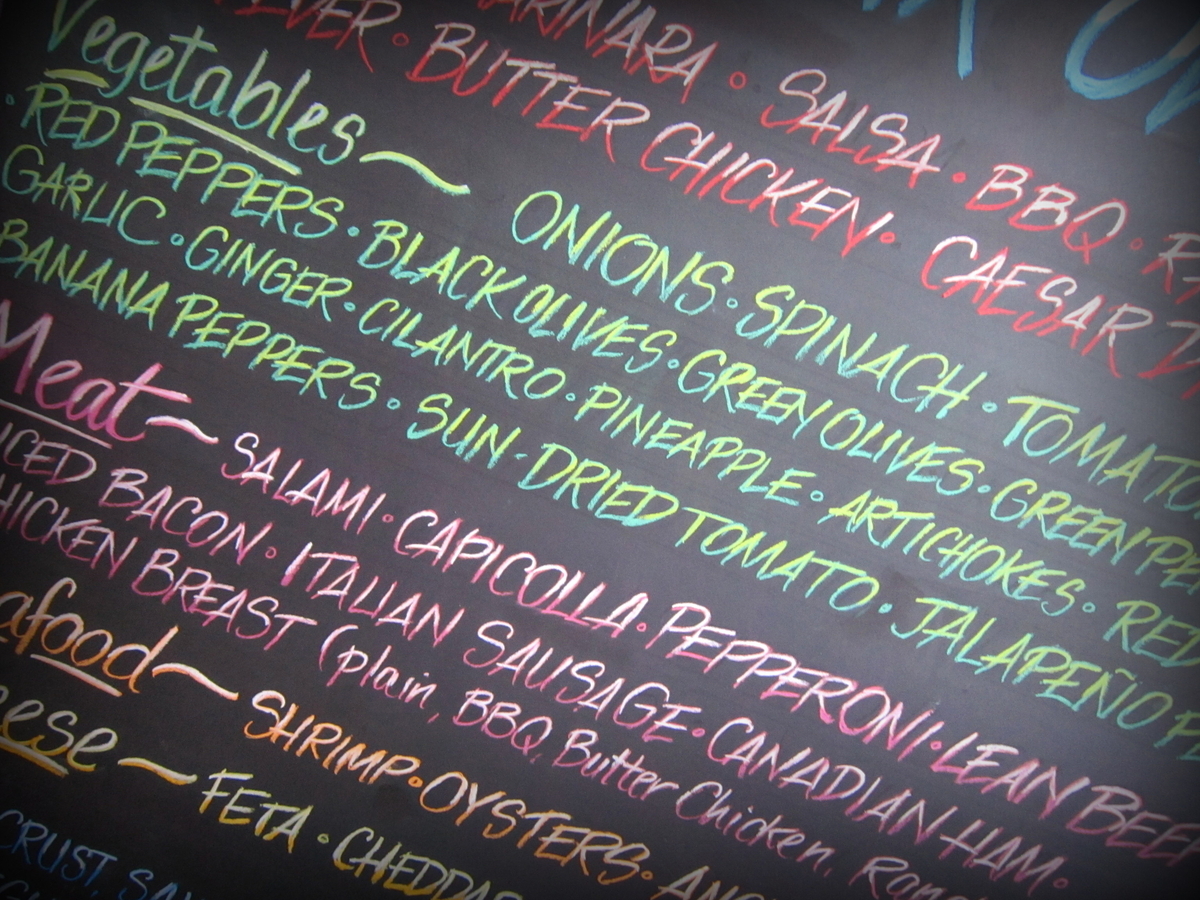 MARINARA · SALSA · BBQ ·
BUTTER CHICKEN · CAESAR
Vegetables ~ ONIONS · SPINACH · TOMATO
· RED PEPPERS · BLACK OLIVES · GREEN OLIVES · GREEN PE
GARLIC · GINGER · CILANTRO · PINEAPPLE · ARTICHOKES · RED
BANANA PEPPERS · SUN-DRIED TOMATO · JALAPEÑO PE
Meat ~ SALAMI · CAPICOLLA · PEPPERONI · LEAN BEEF
ICED BACON · ITALIAN SAUSAGE · CANADIAN HAM ·
HICKEN BREAST (plain, BBQ, Butter Chicken, Ran
afood ~ SHRIMP · OYSTERS ·
eese ~ FETA · CHEDDAR
CRUST,